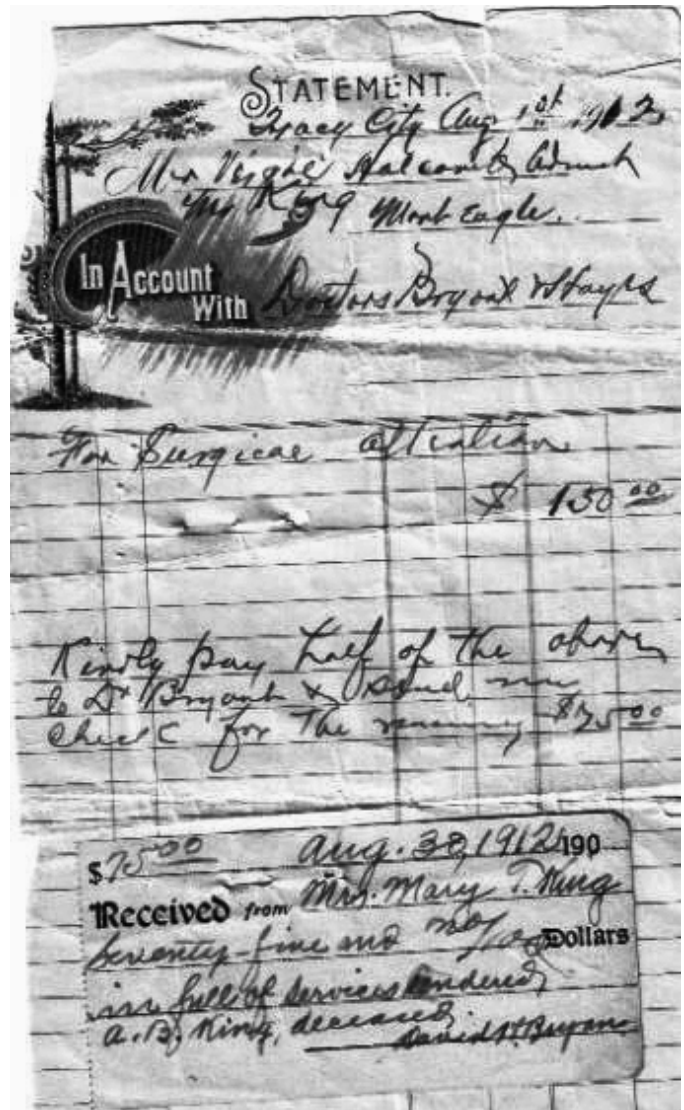 STATEMENT.
Tracy City Aug 1st 1912
Mr Virgil Holcomb, Admr
Mr King
Mont Eagle.
In Account With Doctors Bryant & Hayes
For Surgical Attention
$ 150 00
Kindly pay half of the above
to Dr Bryant & send me
check for the remaining $75 00
$75 00 Aug. 30, 1912 190
Received from Mrs. Mary T. King
Seventy-five and no/100 Dollars
in full of services rendered
A. B. King, deceased
David H. Bryan